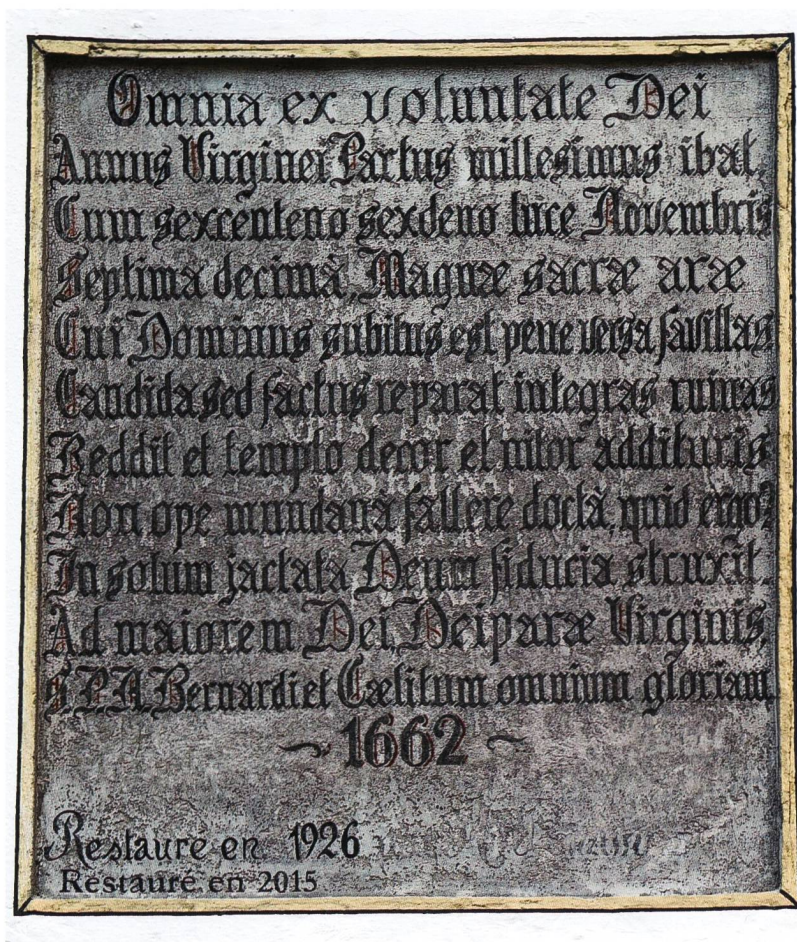 Omnia ex voluntate Dei
Annus Virginei Partus millesimus ibat,
Cum sexcenteno sexdeno luce Novembris
Septima decimâ, Magnæ sacræ aræ
Cui Dominus subitus est pene versa favillas
Candida sed factus reparat integras ruinas
Reddit et templo decor et nitor addituris
Non ope mundanâ fallere doctâ, quid ergo?
In solum jactata Deum fiducia struxit.
Ad maiorem Dei, Deiparæ Virginis,
S.P.N. Bernardi et Cælitum omnium gloriam
~ 1662 ~
Restauré en 1926
Restauré en 2015